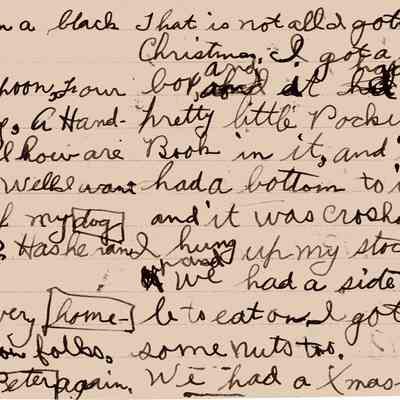 n a black
poon, Four
g, A Hand-
l how are
Well I want
f my dog
Has he ran
very home-
folks,
Peter again.
That is not all I got
Christmas. I got a
box, and it
pretty little Pocke
Book in it, and
had a bottom to i
and it was crosh
I hung up my stoc
We had a side
to eat on, I got
some nuts too.
We had a Xmas-